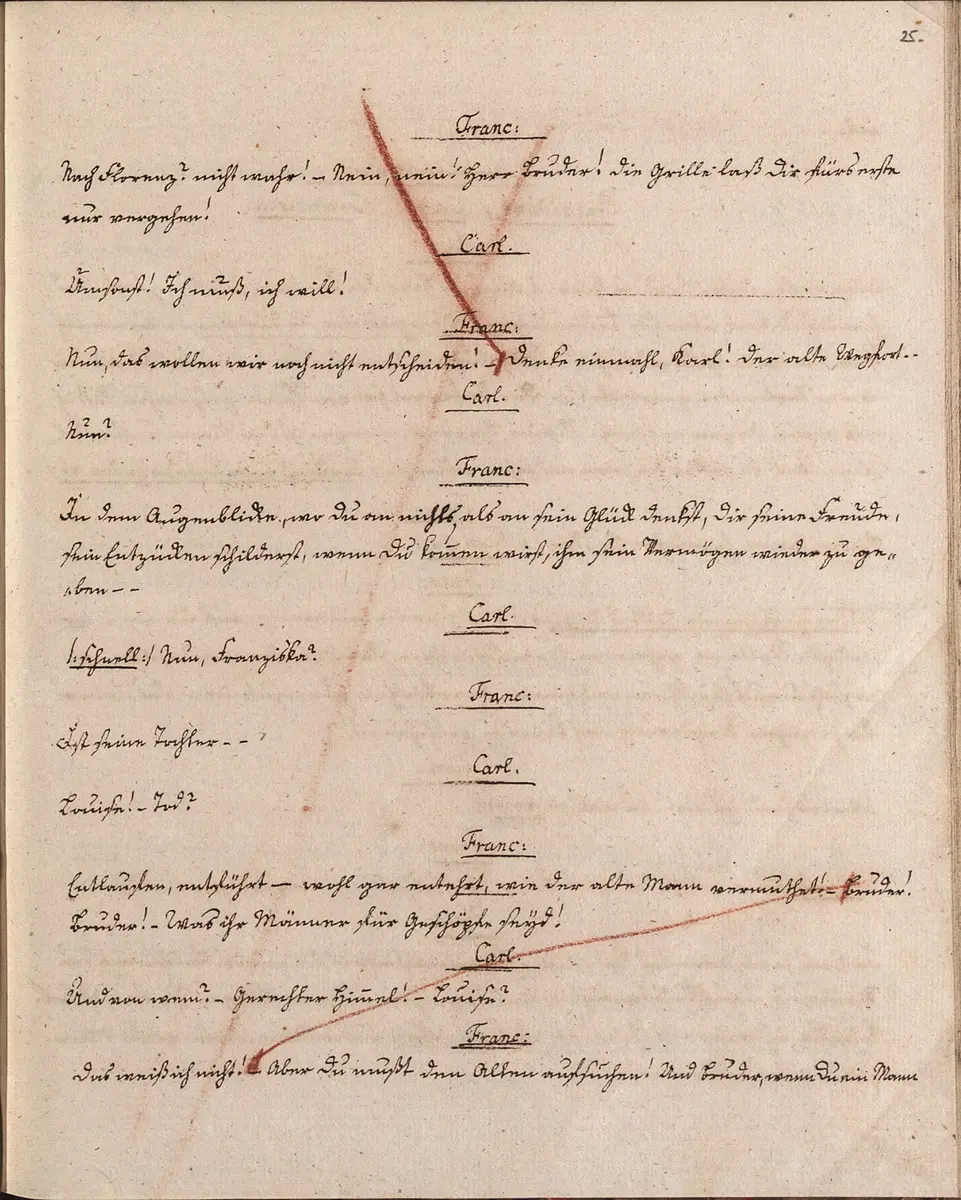 25.
Franc:
Nach Florenz? nicht wahr! – Nein, nein! Herr Bruder! die Grille laß dir fürs erste
nur vergehen!
Carl.
Umsonst! Ich muß, ich will!
Franc:
Nun, das wollen wir noch nicht entscheiden! – Denke einmahl, Karl! der alte Wegfort--
Carl.
Nun?
Franc:
In dem Augenblicke, wo du an nichts, als an sein Glück denkst, dir seine Freude,
sein Entzücken schilderst, wenn du kom̅en wirst, ihm sein Vermögen wieder zu ge„
„ben – –
Carl.
/:schnell:/ Nun, Franziska?
Franc:
Ist seine Tochter – –
Carl.
Louise! – Tod?
Franc:
Entlaufen, entführt – wohl gar entehrt, wie der alte Mann vermuthet! – Bruder!
Bruder! – Was ihr Männer für Geschöpfe seyd!
Carl.
Und von wem? – Gerechter Him̅el! – Louise?
Franc:
Das weiß ich nicht! – Aber du mußt den Alten aufsuchen! Und Bruder, wenn du ein Mann